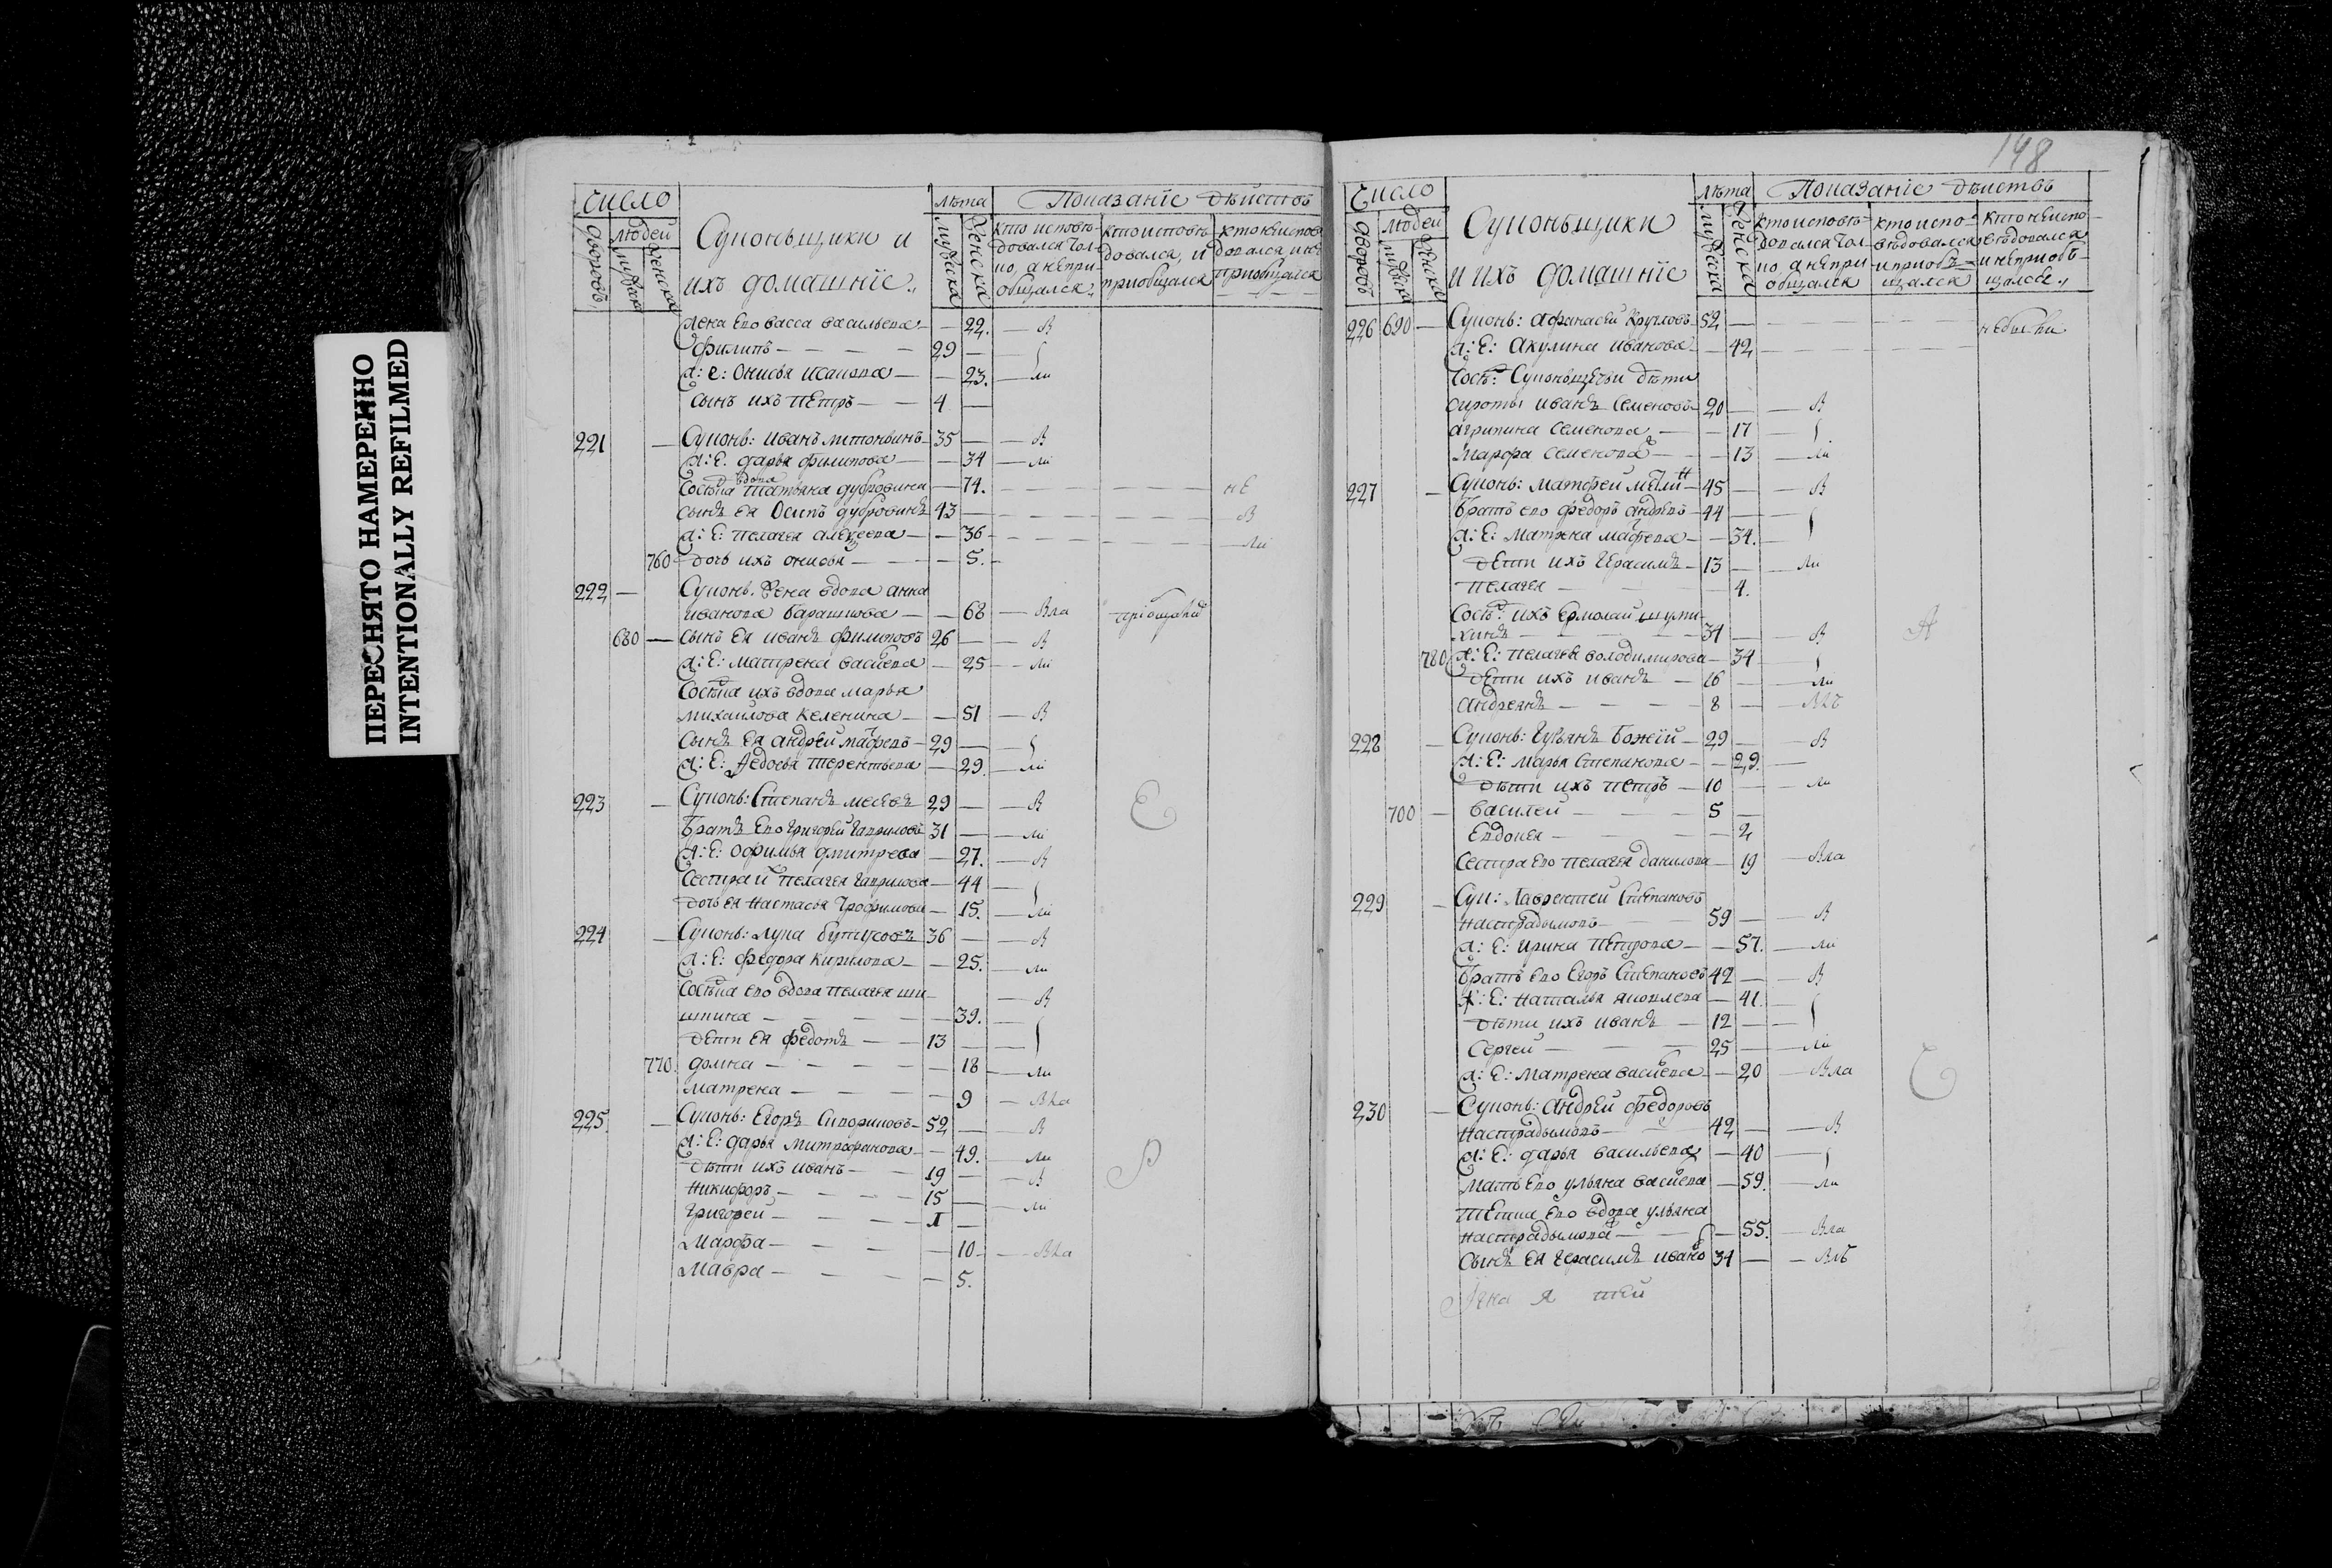 ПЕРЕСНЯТО НАМЕРЕННО
INTENTIONALLY REFILMED
число
людей
дворовъ
мужска
женска
Супоньщики и
ихъ домашнїе
лѣта
мужска
женска
Показанїе дѣйствъ
кто исповѣдовался тол-
ко, а непри-
общался
кто исповѣ-
довался, и
приобщался
кто неиспов
довался, и не
приобщался
жена ево васса васильева 22. в
филипъ 29
ж: е: онисья исаиова 23. ли
сынъ ихъ петръ 4
221 — Супонь: иванъ литонвинъ 35 — в
ж: е: дарья филипова 34 ли
вдова
татьяна дубровина 74. не
сынъ ея осипъ дубровинъ 43 в
ж: е: пелагея алексеева 36 ли
760 дочь ихъ онисья 5.
222 — Супонь. жена вдова анна
иванова барашкова 68 вла приобщалис
680 — сынъ ея иванъ филиповъ 26 — в
ж: е: матрена васильева 25 ли
ихъ вдова марья
михаилова келенина 51 в
сынъ ея андрей матфеевъ 29
ж: е: федосья терентьева 29. ли
223 — Супонь: степанъ 29 — в Е
братъ ево григорей гавриловъ 31 ли
ж: е: офимья дмитрева 27. в
сестра й пелагея гаврилова 44
дочь ея настасья трофимова 15. ли
224 — Супонь: лука бутусовъ 36 — в
ж: е: федора кирилова 25. ли
ево вдова пелагея ши-
шкина 39. в
дети ея федотъ 13
770. домна 18 ли
матрена 9 вла
225 — Супонь: егоръ сидориновъ 52 — в
ж: е: дарья митрофанова 49. ли Р
дети ихъ иванъ 19 в
никифоръ 15 ли
григорей 1
марфа 10 вла
мавра 5.
198
число
людей
дворовъ
мужска
женска
Супоньщики
и ихъ домашнїе
лѣта
мужска
женска
Показанїе дѣиствъ
кто исповѣ-
довался тол-
ко, а непри
общался
кто испо-
вѣдовался
и приоб-
щался
кто неиспо-
вѣдовался
и неприоб-
щался
226 690 — Супонь: афанасей кругловъ 52 —
ж: е: акулина иванова 42
Сосѣ: дѣти
сироты иванъ семеновъ 20 — в
агрипина семенова 17
марфа семенова 13 ли
227 — Супонь: матфей 45 — в
братъ ево федоръ андреевъ 44
ж: е: матрена матфеева 34.
дети ихъ герасимъ 13 ли
пелагея 4.
Сосѣ: ихъ ермолай шули-
хинъ 34 — в А
780 ж: е: пелагея володимирова 34
дети ихъ иванъ 16 ли
андреянъ 8 влъ
228 — Супонь: гурьянъ божїй 29 — в
ж: е: марья степанова 29.
дѣти ихъ петръ 10 ли
700 — василей 5
евдокея 2
сестра ево пелагея данилова 19 вла
229 — Суп: лаврентей степановъ
настрадымовъ 59 — в
ж: е: ирина петрова 57. ли
братъ ево егоръ степановъ 42 — в
ж: е: наталья яковлева 41.
дѣти ихъ иванъ 12
сергей 25 ли
ж: е: матрена васильева 20 вла С
230 — Супонь: андрей федоровъ
настрадымовъ 42 — в
ж: е: дарья васильева 40
мать ево ульяна васильева 59. ли
тещиа ево вдова ульяна
настрадымова 55. вла
сынъ ея герасимъ ивано 34 — влъ